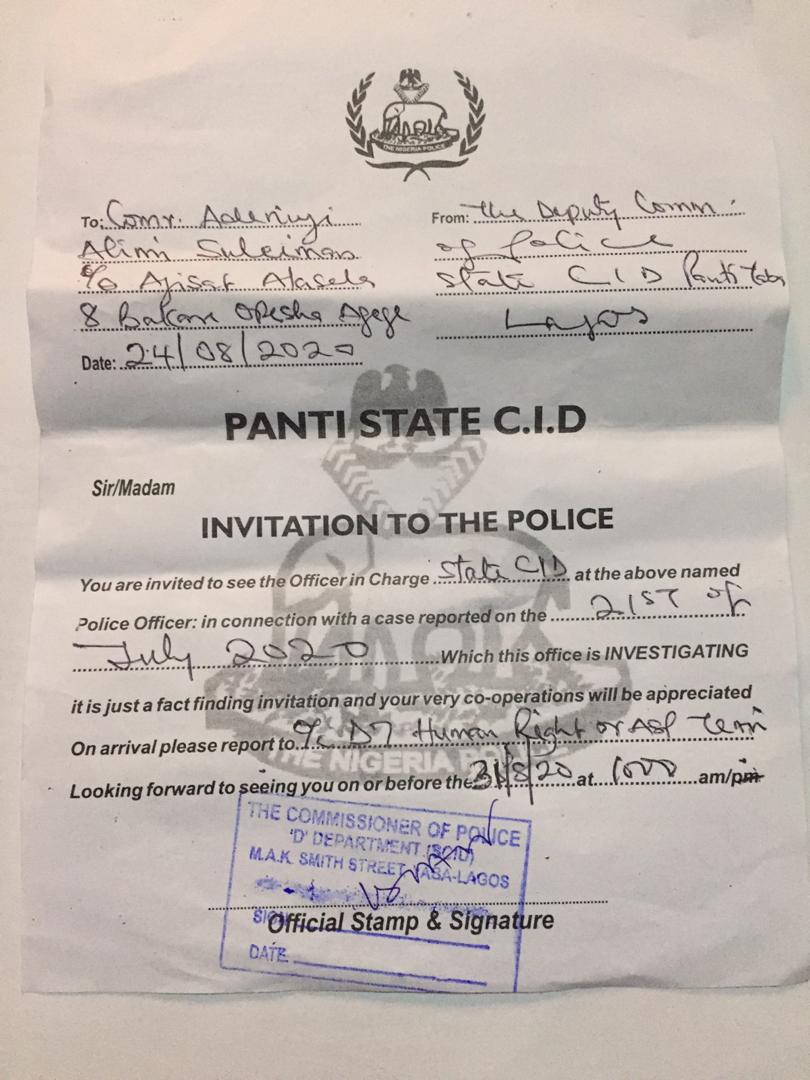 THE NIGERIA POLICE
To: Comr. Adeniyi
Alimi Suleiman
c/o Ajisat Alasela
8 Bakare Opesha Agege
Date: 24/08/2020
From: The Deputy Comm.
of Police
State CID Panti Yaba
Lagos
PANTI STATE C.I.D
Sir/Madam
INVITATION TO THE POLICE
You are invited to see the Officer in Charge State CID at the above named
Police Officer: in connection with a case reported on the 21st of
July 2020 Which this office is INVESTIGATING
it is just a fact finding invitation and your very co-operations will be appreciated
On arrival please report to O/C D7 Human Right or ASP
THE NIGERIA
Looking forward to seeing you on or before the 31/8/20 at 1000 am/pm
THE COMMISSIONER OF POLICE
'D' DEPARTMENT (SCID)
M.A.K. SMITH STREET YABA-LAGOS
SIGN
Official Stamp & Signature
DATE